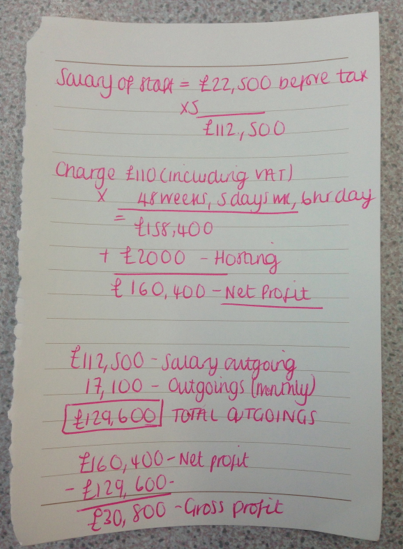 Salary of staff = £22,500 before tax
x5
£112,500
Charge £110 (including VAT)
x 48 weeks, 5 days wk, 6hr day
= £158,400
+ £2000 - Hosting
£160,400 - Net Profit
£112,500 - Salary outgoing
17,100 - Outgoings (monthly)
£129,600 TOTAL OUTGOINGS
£160,400 - Net profit
- £129,600 -
£30,800 - Gross profit